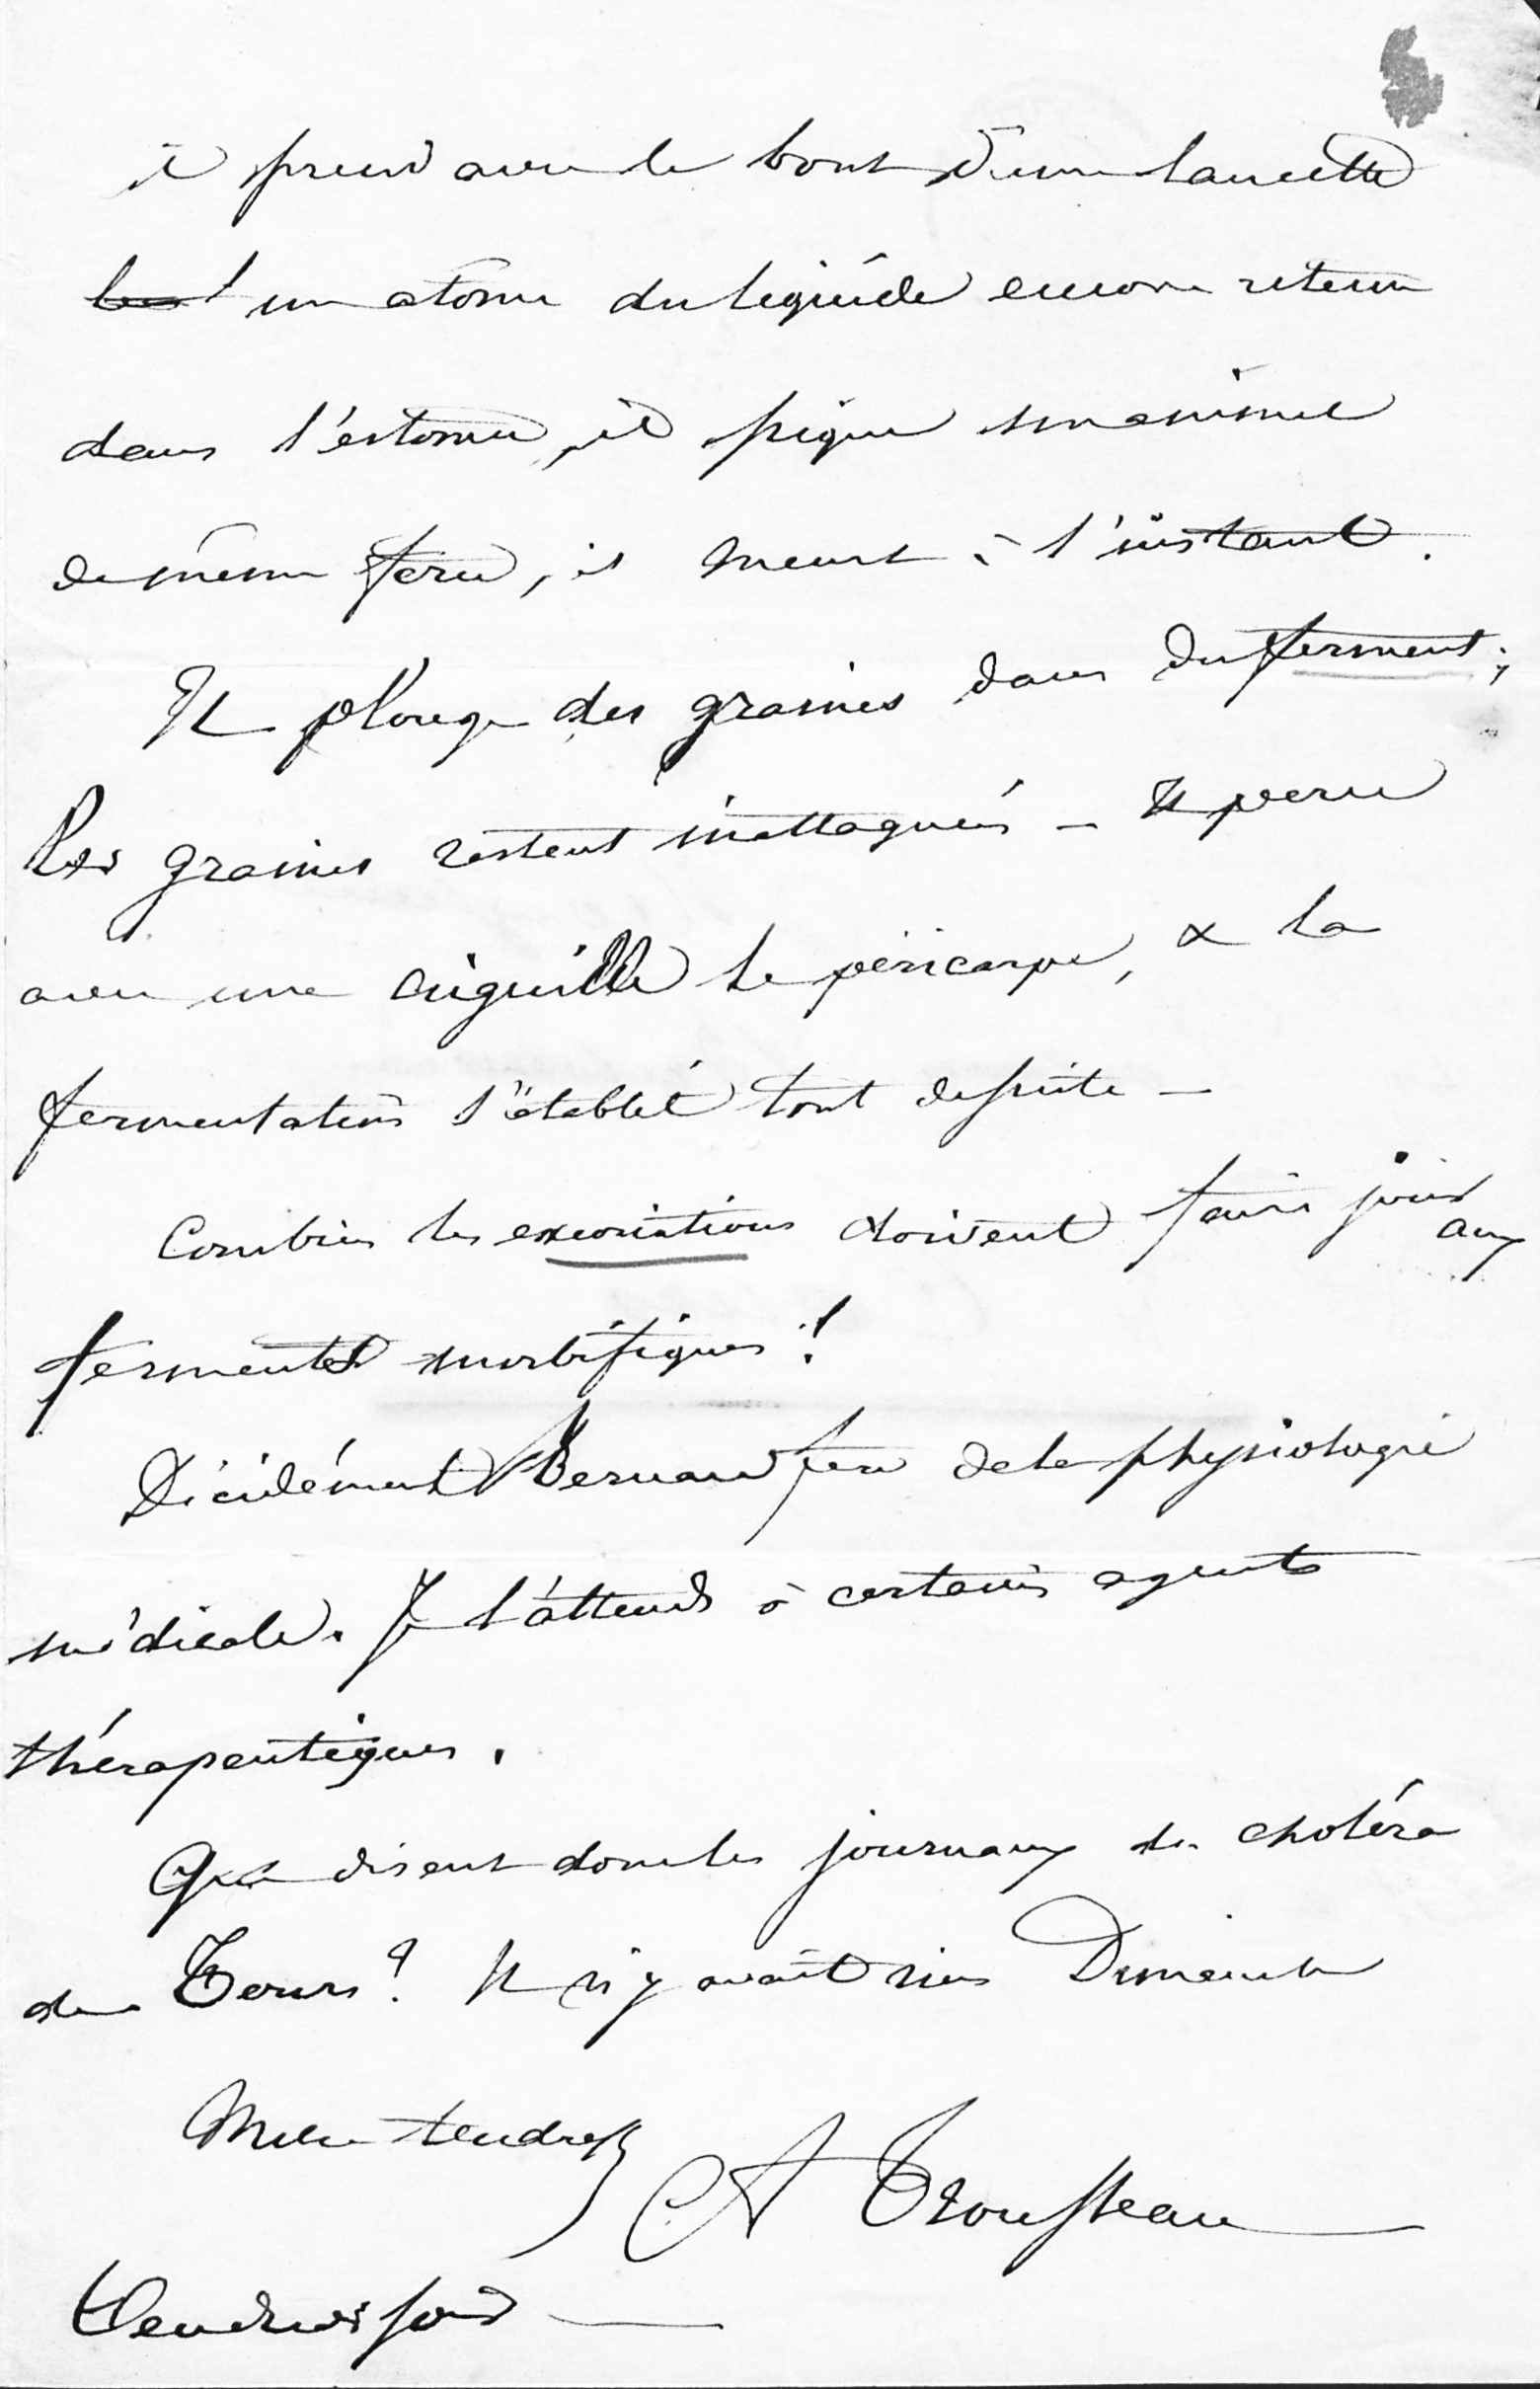 il prend avec le bout d'une lancette
un atome du liquide encore retenu
dans l'estomac, il pique un animal
de même , il meurt à l'instant.
Il plonge des graines dans du ferment;
les graines restent inattaquées – Il perce
avec une aiguille le péricarpe, & la
fermentation s'établit tout de suite –
Combien les excoriations doivent faire jour aux
ferments morbifiques !
Décidément Bernard fera de la physiologie
médicale. Je l'attends à certains agents
thérapeutiques.
Que disent donc les journaux du choléra
de Tours ? Il n'y avait rien Dimanche
Mille tendresses
A Trousseau
Vendredi soir –